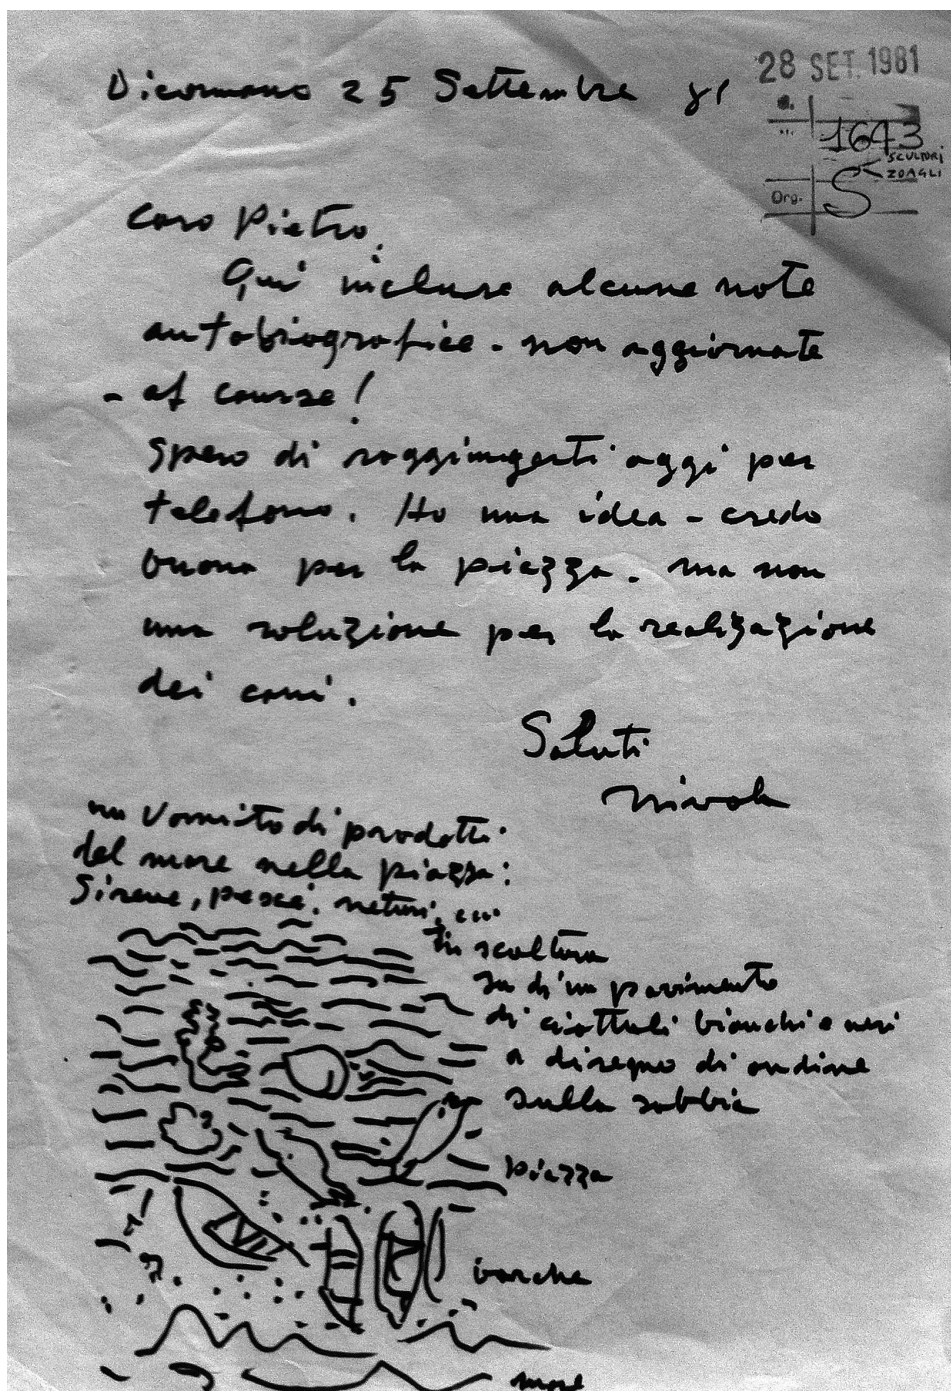 Dicomano 25 Settembre 81
28 SET. 1981
1643
SCULTORI
ZOAGLI
Org.
S
Caro Pietro,
Qui incluse alcune note
autobiografice - non aggiornate
- of course!
Spero di raggiungerti oggi per
telefono. Ho una idea - credo
buona per la piazza. ma non
una soluzione per la realizazione
dei coni.
Saluti
Nivola
un Vomito di prodotti
del mare nella piazza:
Sirene, pesci,
in scultura
su di un pavimento
di ciottuli bianchi e neri
a disegno di ondine
sulla sabbia
piazza
barche
mare